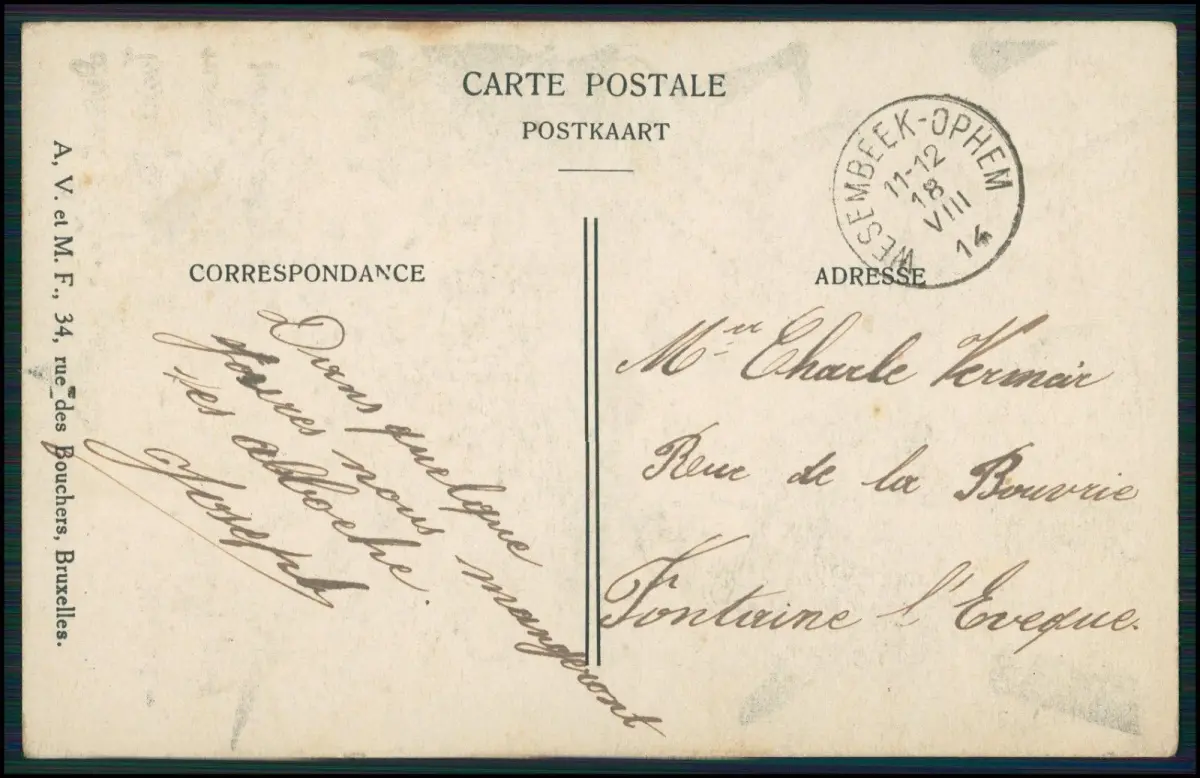 CARTE POSTALE
POSTKAART
WESEMBEEK-OPHEM
11-12
18
VIII
14
CORRESPONDANCE
ADRESSE
A. V. et M. F., 34, rue des Bouchers, Bruxelles.
Dans quelque
jours nous mangeront
les abboche.
Joseph
Mr Charle Vermeir
Rue de la Bouvrie
Fontaine l'Eveque.